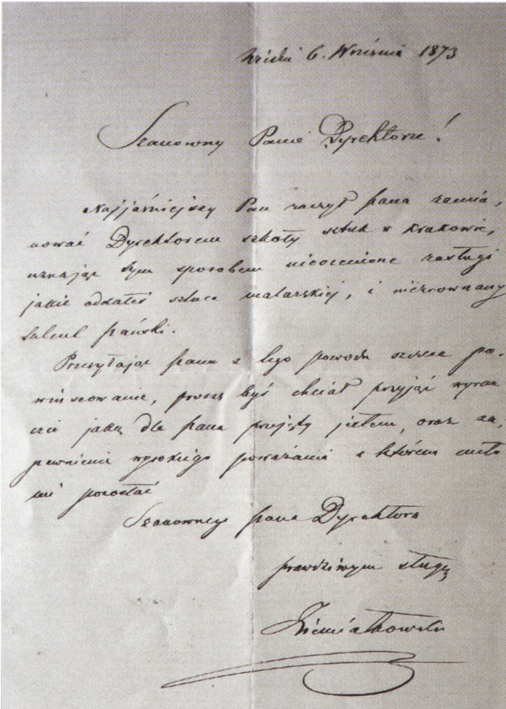 Wiedeń 6. Września 1873
Szanowny Panie Dyrektorze!
Najjaśniejszy Pan raczył pana zamia,
nować Dyrektorem szkoły sztuk w Krakowie,
uznając tym sposobem nieocenione zasługi
jakie oddałeś sztuce malarskiej, i niezrównany
talent pański.
Przesyłając panu z tego powodu szczere po-
winszowanie, proszę byś chciał przyjąć wyraz
czci jaką dla pana przejęty jestem, oraz za,
pewnienie wysokiego poważania z którem miło
mi pozostać
Szanownego pana Dyrektora
prawdziwym sługą
Ziemiałkowski